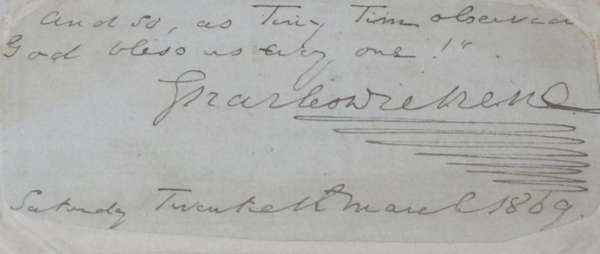 And so, as Tiny Tim observed
God bless us every one!"
Charles Dickens
Saturday Twentieth March 1869.